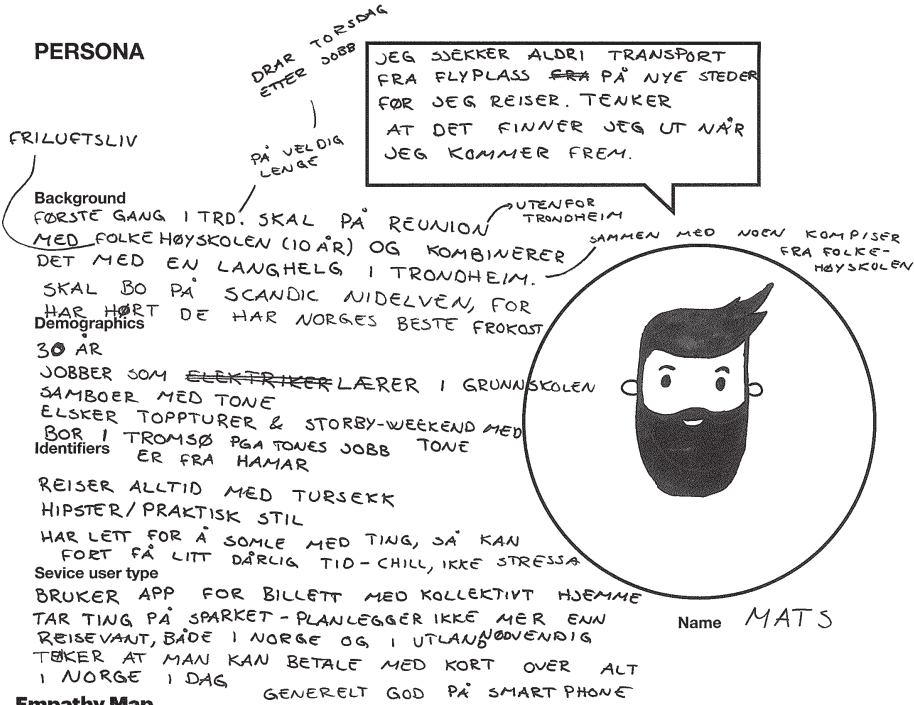 PERSONA
DRAR TORSDAG
ETTER JOBB
PÅ VELDIG
LENGE
FRILUFTSLIV
JEG SJEKKER ALDRI TRANSPORT
FRA FLYPLASS FRA PÅ NYE STEDER
FØR JEG REISER. TENKER
AT DET FINNER JEG UT NÅR
JEG KOMMER FREM.
Background
FØRSTE GANG I TRD. SKAL PÅ REUNION
UTENFOR
TRONDHEIM
MED FOLKEHØYSKOLEN (10 ÅR) OG KOMBINERER
DET MED EN LANGHELG I TRONDHEIM.
SAMMEN MED NOEN KOMPISER
FRA FOLKE-
HØYSKOLEN
SKAL BO PÅ SCANDIC NIDELVEN, FOR
HAR HØRT DE HAR NORGES BESTE FROKOST
Demographics
30 ÅR
JOBBER SOM ELEKTRIKER LÆRER I GRUNNSKOLEN
SAMBOER MED TONE
ELSKER TOPPTURER & STORBY-WEEKEND MED
TONE
BOR I TROMSØ PGA TONES JOBB
ER FRA HAMAR
Identifiers
REISER ALLTID MED TURSEKK
HIPSTER/PRAKTISK STIL
HAR LETT FOR Å SOMLE MED TING, SÅ KAN
FORT FÅ LITT DÅRLIG TID - CHILL, IKKE STRESSA
Sevice user type
BRUKER APP FOR BILLETT MED KOLLEKTIVT HJEMME
TAR TING PÅ SPARKET - PLANLEGGER IKKE MER ENN
NØDVENDIG
REISEVANT, BÅDE I NORGE OG I UTLAND
TØKER AT MAN KAN BETALE MED KORT OVER ALT
I NORGE I DAG
GENERELT GOD PÅ SMART PHONE
Name MATS
Empathy Map